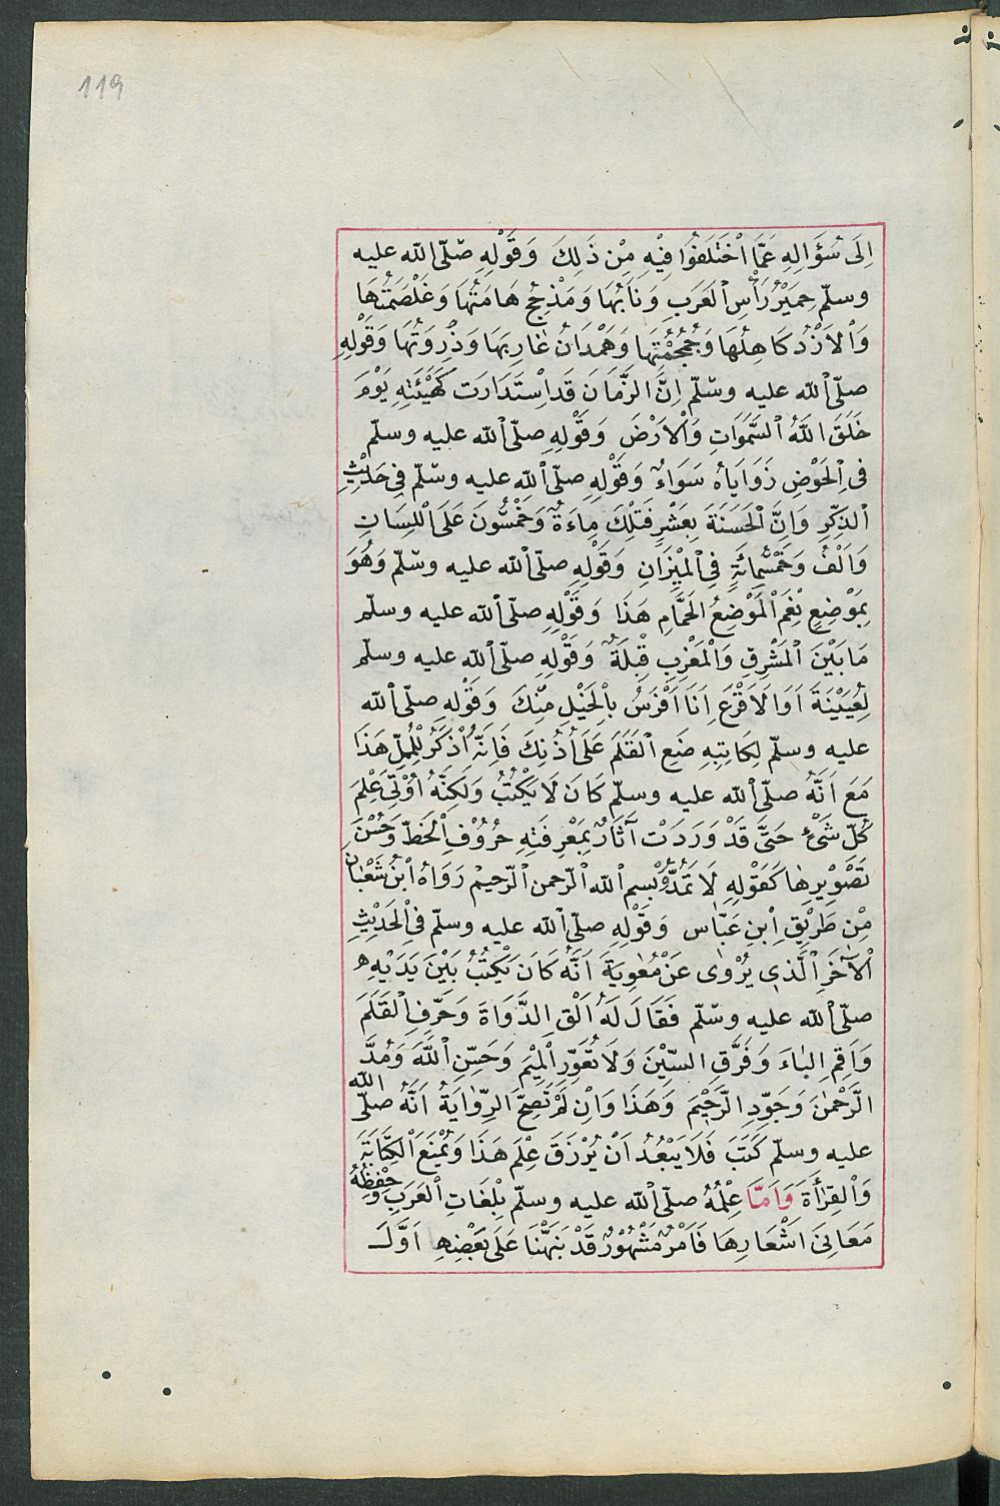 119
اِلَى سُؤَالِهِ عَمَّا اخْتَلَفُوا فِيْهِ مِنْ ذَلِكَ وَقَوْلِهِ صلّى الله عليه
وسلّم حِمْيَرُ رَأْسُ الْعَرَبِ وَنَابُهَا وَمَذْحِجُ هَامَتُهَا وَغَلْصَمَتُهَا
وَالْاَزْدُ كَاهِلُهَا وَجُمْجُمَتُهَا وَهَمْدَانُ غَارِبُهَا وَذُرْوَتُهَا وَقَوْلِهِ
صلّى الله عليه وسلّم اِنَّ الزَّمَانَ قَدِ اسْتَدَارَتْ كَهَيْئَتِهِ يَوْمَ
خَلَقَ اللّٰهُ السَّمٰوَاتِ وَالْاَرْضَ وَقَوْلِهِ صلّى الله عليه وسلّم
فِى الْحَوْضِ زَوَايَاهُ سَوَاءٌ وَقَوْلِهِ صلّى الله عليه وسلّم فِى حَدِيْثِ
الذِّكْرِ وَاِنَّ الْحَسَنَةَ بِعَشْرٍ فَتِلْكَ مِاءَةٌ وَخَمْسُونَ عَلَى اللِّسَانِ
وَاَلْفٌ وَخَمْسُمِائَةٍ فِى الْمِيْزَانِ وَقَوْلِهِ صلّى الله عليه وسلّم وَهُوَ
بِمَوْضِعٍ نِعْمَ الْمَوْضِعُ الْحَمَّامِ هَذَا وَقَوْلِهِ صلّى الله عليه وسلّم
مَا بَيْنَ الْمَشْرِقِ وَالْمَغْرِبِ قِبْلَةٌ وَقَوْلِهِ صلّى الله عليه وسلّم
لِعُيَيْنَةَ اَوَالْاَقْرَعِ اَنَا اَفْرَسُ بِالْخَيْلِ مِنْكَ وَقَوْلِهِ صلّى الله
عليه وسلّم لِكَاتِبِهِ ضَعِ الْقَلَمَ عَلَى اُذُنِكَ فَاِنَّهُ اَذْكَرُ لِلْمُمِلِّ هَذَا
مَعَ اَنَّهُ صلّى الله عليه وسلّم كَانَ لَا يَكْتُبُ وَلَكِنَّهُ اُوْتِىَ عِلْمَ
كُلِّ شَىْءٍ حَتَّى قَدْ وَرَدَتْ آثَارٌ بِمَعْرِفَتِهِ حُرُوْفَ الْخَطِّ وَحُسْنَ
تَصْوِيْرِهَا كَقَوْلِهِ لَا تَمُدُّوْ بِسْمِ الله الرّحمن الرّحيم رَوَاهُ ابْنُ شَعْبَان
مِنْ طَرِيْقِ ابْنِ عَبَّاس وَقَوْلِهِ صلّى الله عليه وسلّم فِى الْحَدِيْثِ
الْاٰخَرِ الَّذِى يُرْوٰى عَنْ مُعٰوِيَةَ اَنَّهُ كَانَ يَكْتُبُ بَيْنَ يَدَيْهِ
صلّى الله عليه وسلّم فَقَالَ لَهُ اَلْقِ الدَّوَاةَ وَحَرِّفِ الْقَلَمَ
وَاَقِمِ الْبَاءَ وَفَرِّقِ السِّيْنَ وَلَا تُعَوِّرِ الْمِيْمَ وَحَسِّنِ اللّٰهَ وَمُدَّ
الرَّحْمٰنَ وَجَوِّدِ الرَّحِيْمَ وَهَذَا وَاِنْ لَمْ تَصِحَّ الرِّوَايَةُ اَنَّهُ صلّى الله
عليه وسلّم كَتَبَ فَلَا يَبْعُدُ اَنْ يُرْزَقَ عِلْمَ هَذَا وَيُمْنَعَ الْكِتَابَةَ
وَالْقِرَأَةَ وَاَمَّا عِلْمُهُ صلّى الله عليه وسلّم بِلُغَاتِ الْعَرَبِ وَحِفْظِهُ
مَعَانِىَ اَشْعَارِهَا فَاَمْرٌ مَشْهُوْرٌ قَدْ نَبَهْنَا عَلَى بَعْضِهِ اَوَّلَ